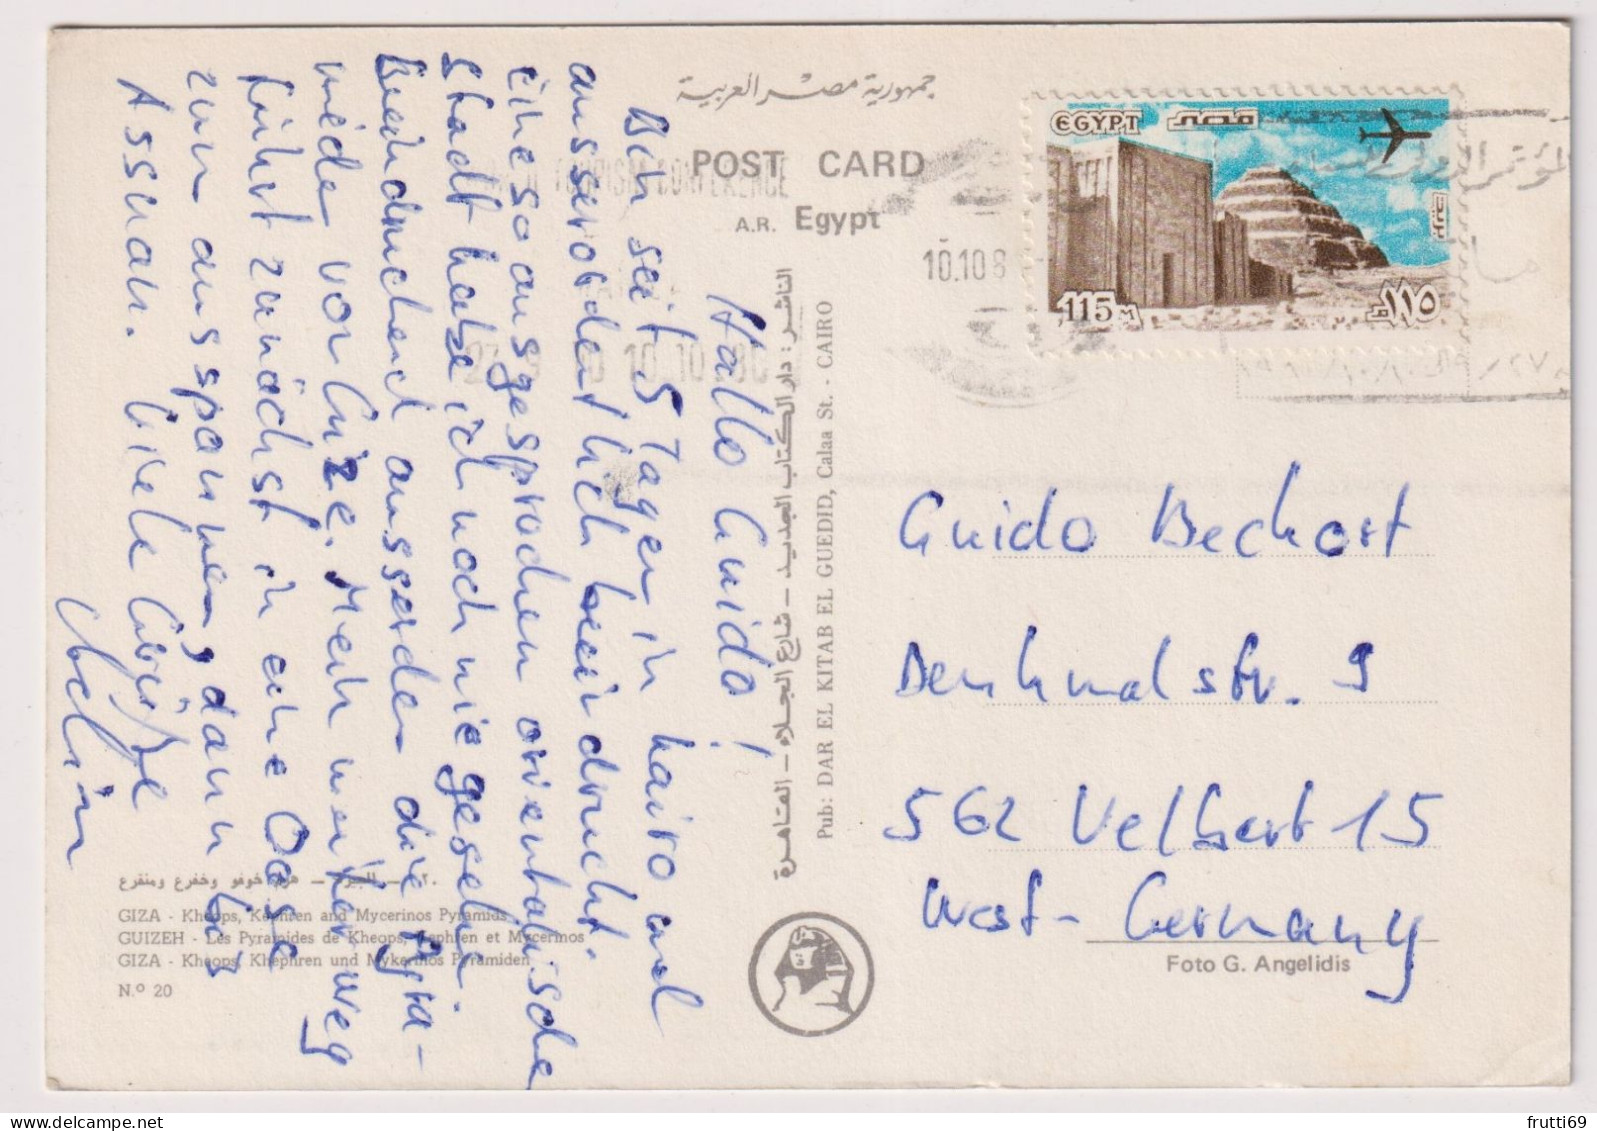 جمهورية مصر العربية
POST CARD
A.R. Egypt
TOURISM CONFERENCE
10.10.80
10.10 8
EGYPT مصر
115 M
١١٥
Hallo Guido!
Bin seit 5 Tagen in Kairo und
ausserordentlich beeindruckt.
Eine so ausgesprochen orientalische
Stadt habe ich noch nie gesehen.
Beeindruckend ausserdem die Pyra-
mide von Gize. Mein weiterer Weg
führt zunächst in eine Oase
zum ausspannen, dann bis
Assuan. Liebe Grüße
الناشر: دار الكتاب الجديد - شارع الجلاء - القاهرة
Pub: DAR EL KITAB EL GUEDID, Calaa St. - CAIRO
Guido Beckort
Denkmalstr. 9
562 Velbert 15
West-Germany
Foto G. Angelidis
٢٠ - الجيزة - هرم خوفو وخفرع ومنقرع
GIZA - Kheops, Kephren and Mycerinos Pyramids
GUIZEH - Les Pyramides de Kheops, Kephren et Mycerinos
GIZA - Kheops, Khephren und Mykerinos Pyramiden
N.º 20
frutti69